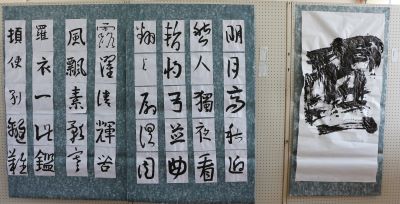 明月高秋迥
愁人獨夜看
暫將弓並曲
翻與扇俱團
露濯清輝苦
風飄素影寒
羅衣一此鑑
頓使別離難